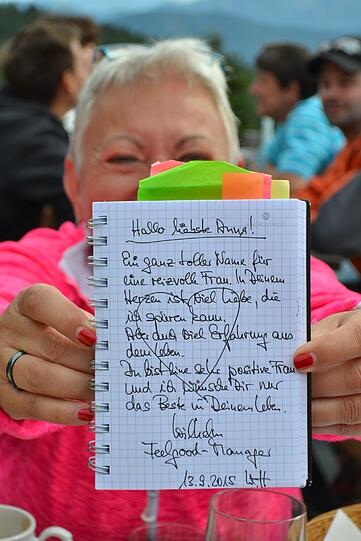 Hallo liebste Anna!
Ein ganz toller Name für
eine reizvolle Frau. In Deinem
Herzen ist viel Liebe, die
ich spüren kann.
Aber auch viel Erfahrung aus
dem Leben.
Du bist eine sehr positive Frau
und ich wünsche Dir nur
das Beste in Deinem Leben.
Wilhelm
Feelgood-Manager
13.9.2015